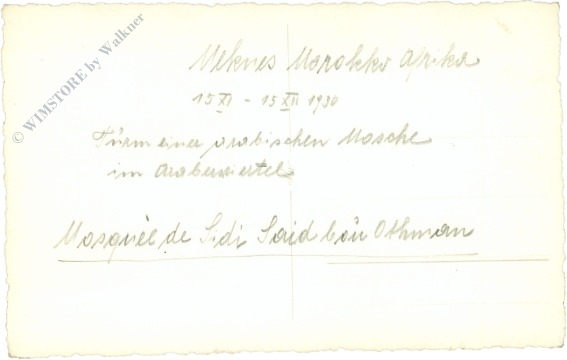 Meknes Marokko Afrika
15 XI - 15 XII 1930
Türm einer arabischen Mosche
im Araberviertel
Mosquèe de Sidi Said bou Othman
© WIMSTORE by Walkner